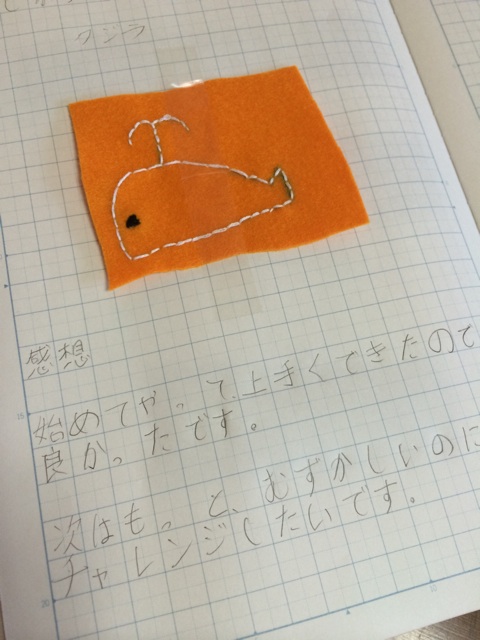 クジラ
感想
始めてやって、上手くできたので
良かったです。
次はもっと、むずかしいのに
チャレンジしたいです。
15
20
10